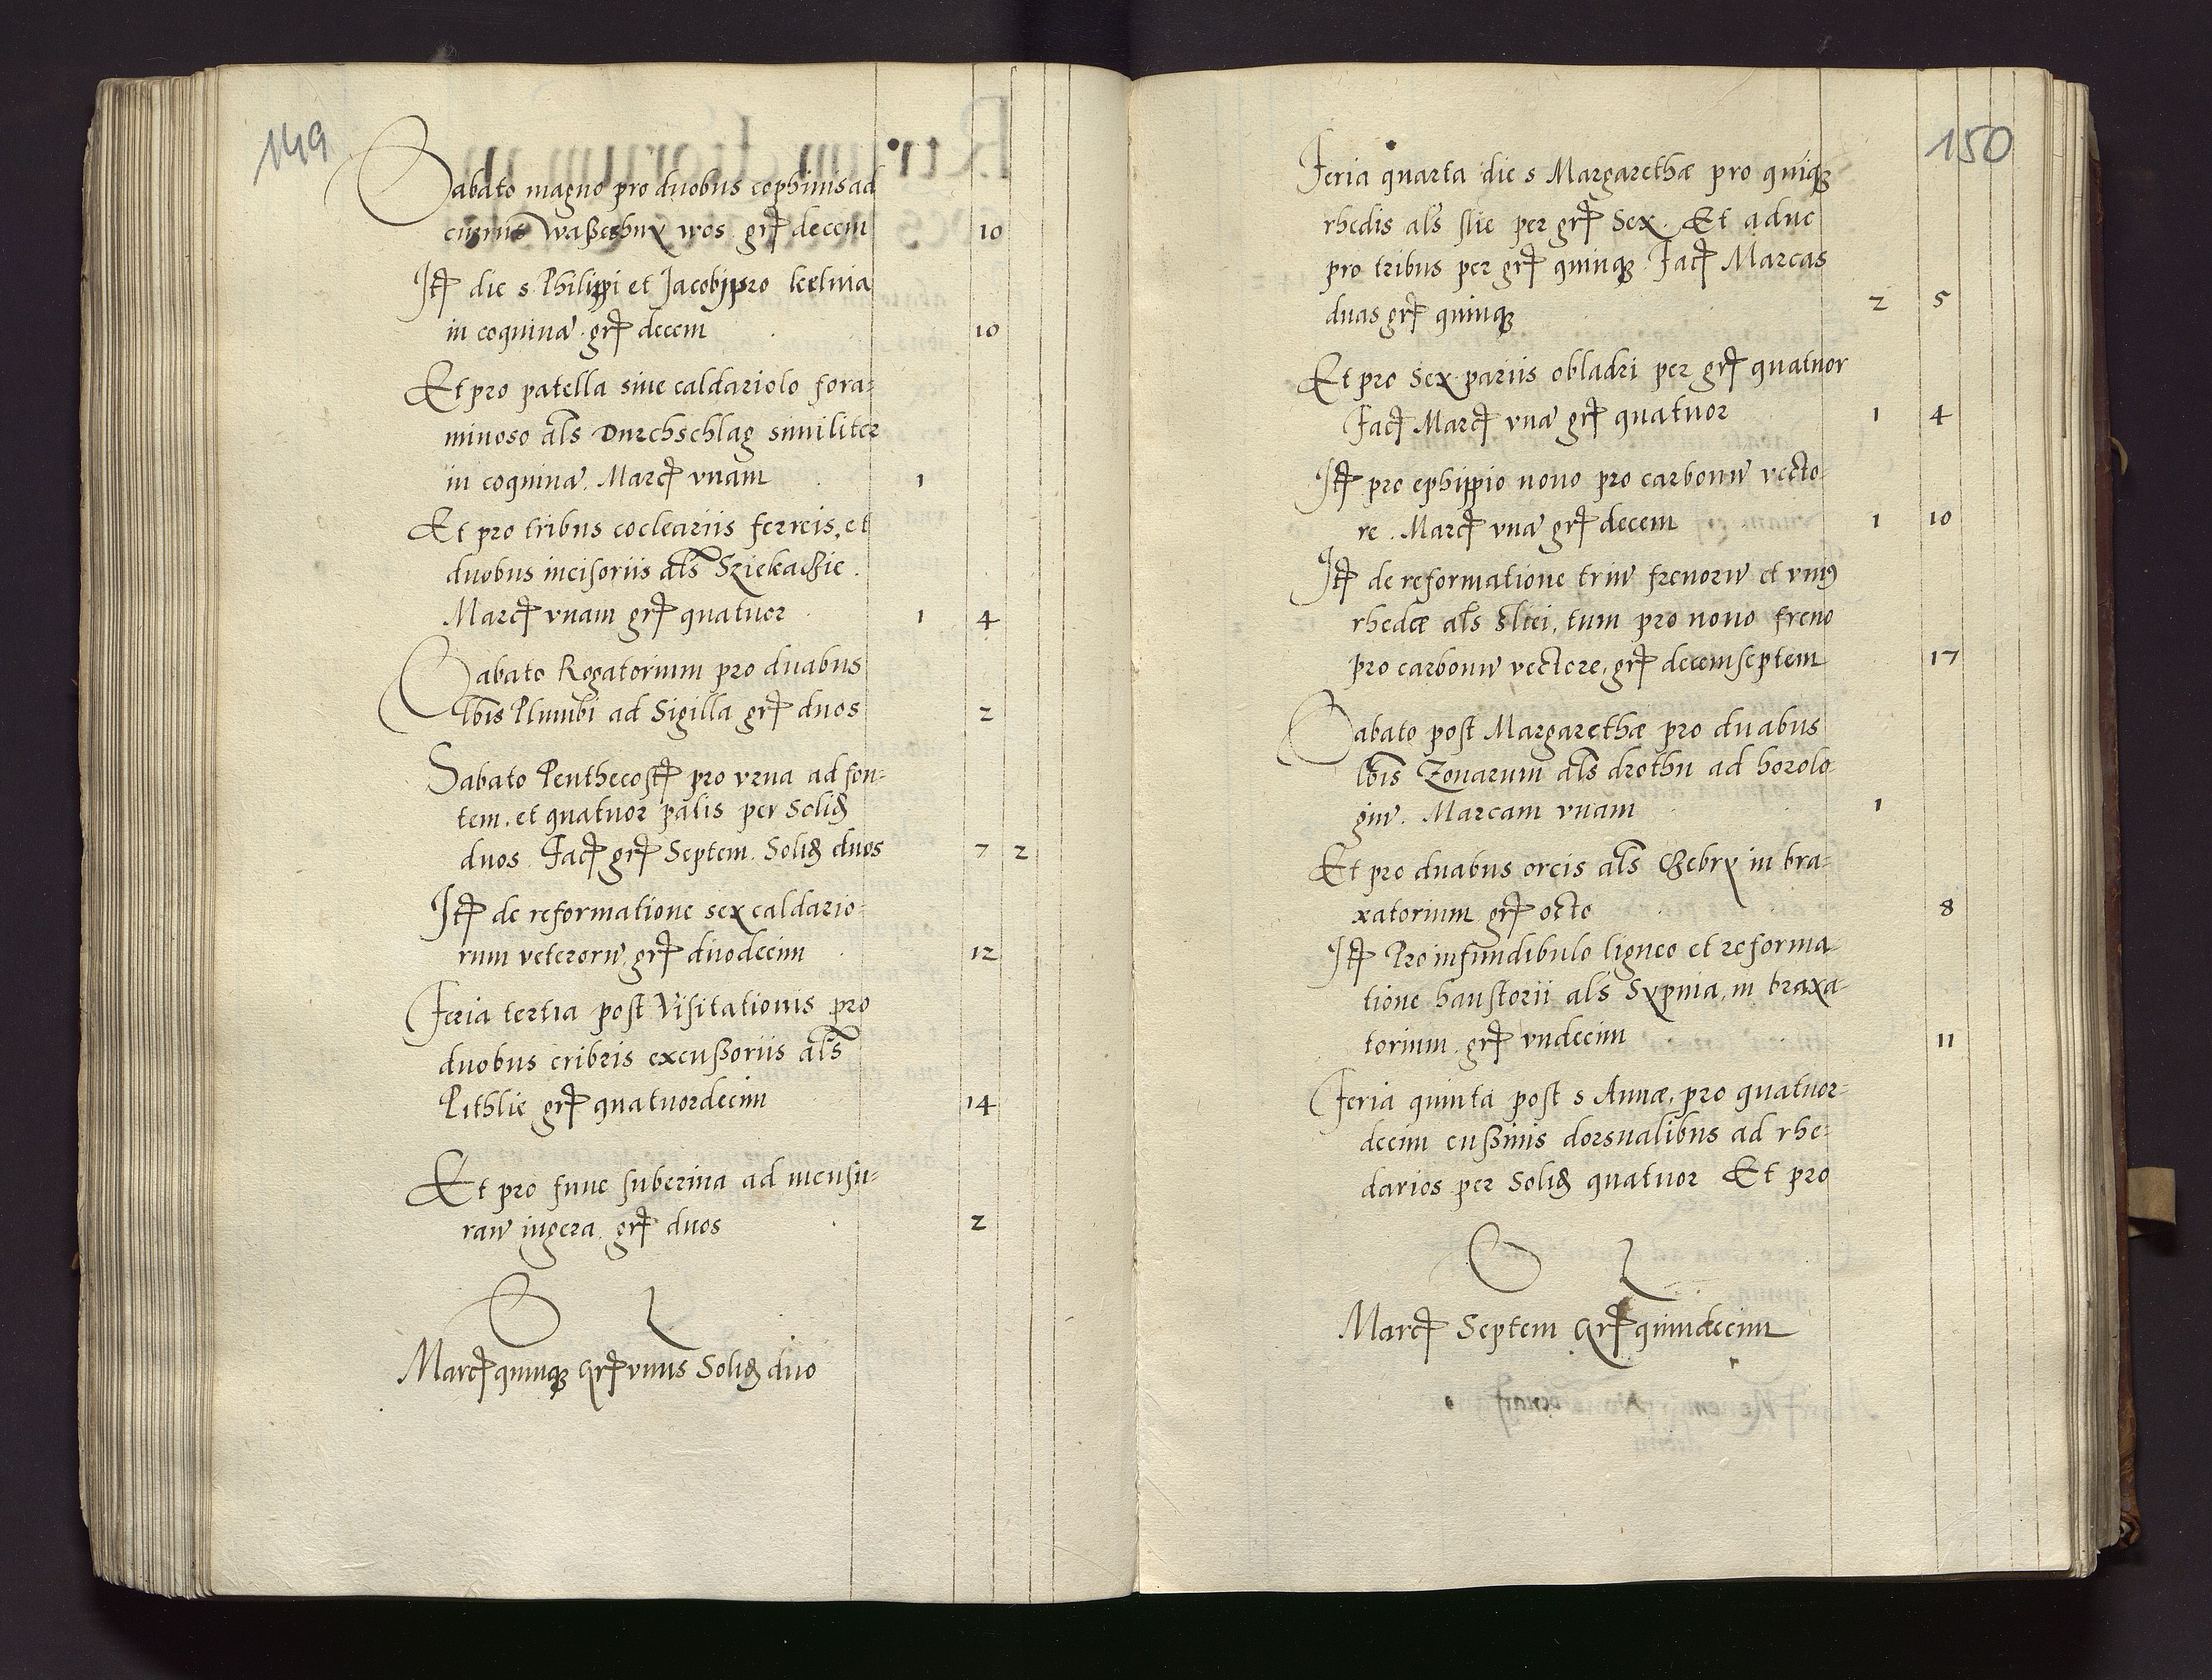 149
Sabato magno pro duobus cophinis ad
currus Waßeshny wos grꝭ decem 10
Itꝭ die s Philippi et Jacobj pro kelnia
in coquina grꝭ decem 10
Et pro patella siue caldariolo fora-
minoso als Durchschlag similiter
in coquina. Marcꝭ vnam 1
Et pro tribus cocleariis ferreis, et
duobus incisoriis als SziekacZie.
Marcꝭ vnam grꝭ quatuor 1 4
Sabato Rogationum pro duabus
lbis Plumbi ad Sigilla grꝭ duos 2
Sabato Penthecostꝭ pro vrna ad fon-
tem, et quatuor palis per Solid
duos. Facꝭ grꝭ Septem. Solid duos 7 2
Itꝭ de reformatione sex caldario-
rum veterorū grꝭ duodecim 12
Feria tertia post Visitationis pro
duobus cribris excußoriis als
Pithlie grꝭ quatuordecim 14
Et pro fune suberina ad mensu-
ran̄ iugera grꝭ duos 2
Marcꝭ quinqꝫ Grꝭ vnus Solid duo
150
Feria quarta die s Margarethæ pro quiqꝫ
rhedis als slie per grꝭ Sex. Et aduc
pro tribus per grꝭ quinqꝫ. Facꝭ Marcas
duas grꝭ quinqꝫ 2 5
Et pro Sex pariis obladri per grꝭ quatuor
Facꝭ Marcꝭ vnā grꝭ quatuor 1 4
Itꝭ pro ephippio nouo pro carbonū vecto-
re. Marcꝭ vnā grꝭ decem 1 10
Itꝭ de reformatione triū frenorū et vniꝰ
rhedæ als sliei, tum pro nouo freno
pro carbonū vectore, grꝭ decemseptem 17
Sabato post Margarethæ pro duabus
lbis Zonarum als drothu ad horolo-
giū. Marcam vnam 1
Et pro duabus orcis als CZebry in bra-
xatorium grꝭ octo 8
Itꝭ Pro infundibulo ligneo et reforma-
tione haustorii als Sypnia, in braxa-
torium grꝭ vndecim 11
Feria quinta post s Annæ, pro quatuor-
decim cußinis dorsualibus ad rhe-
darios per Solid quatuor Et pro
Marcꝭ Septem Grꝭ quindecim